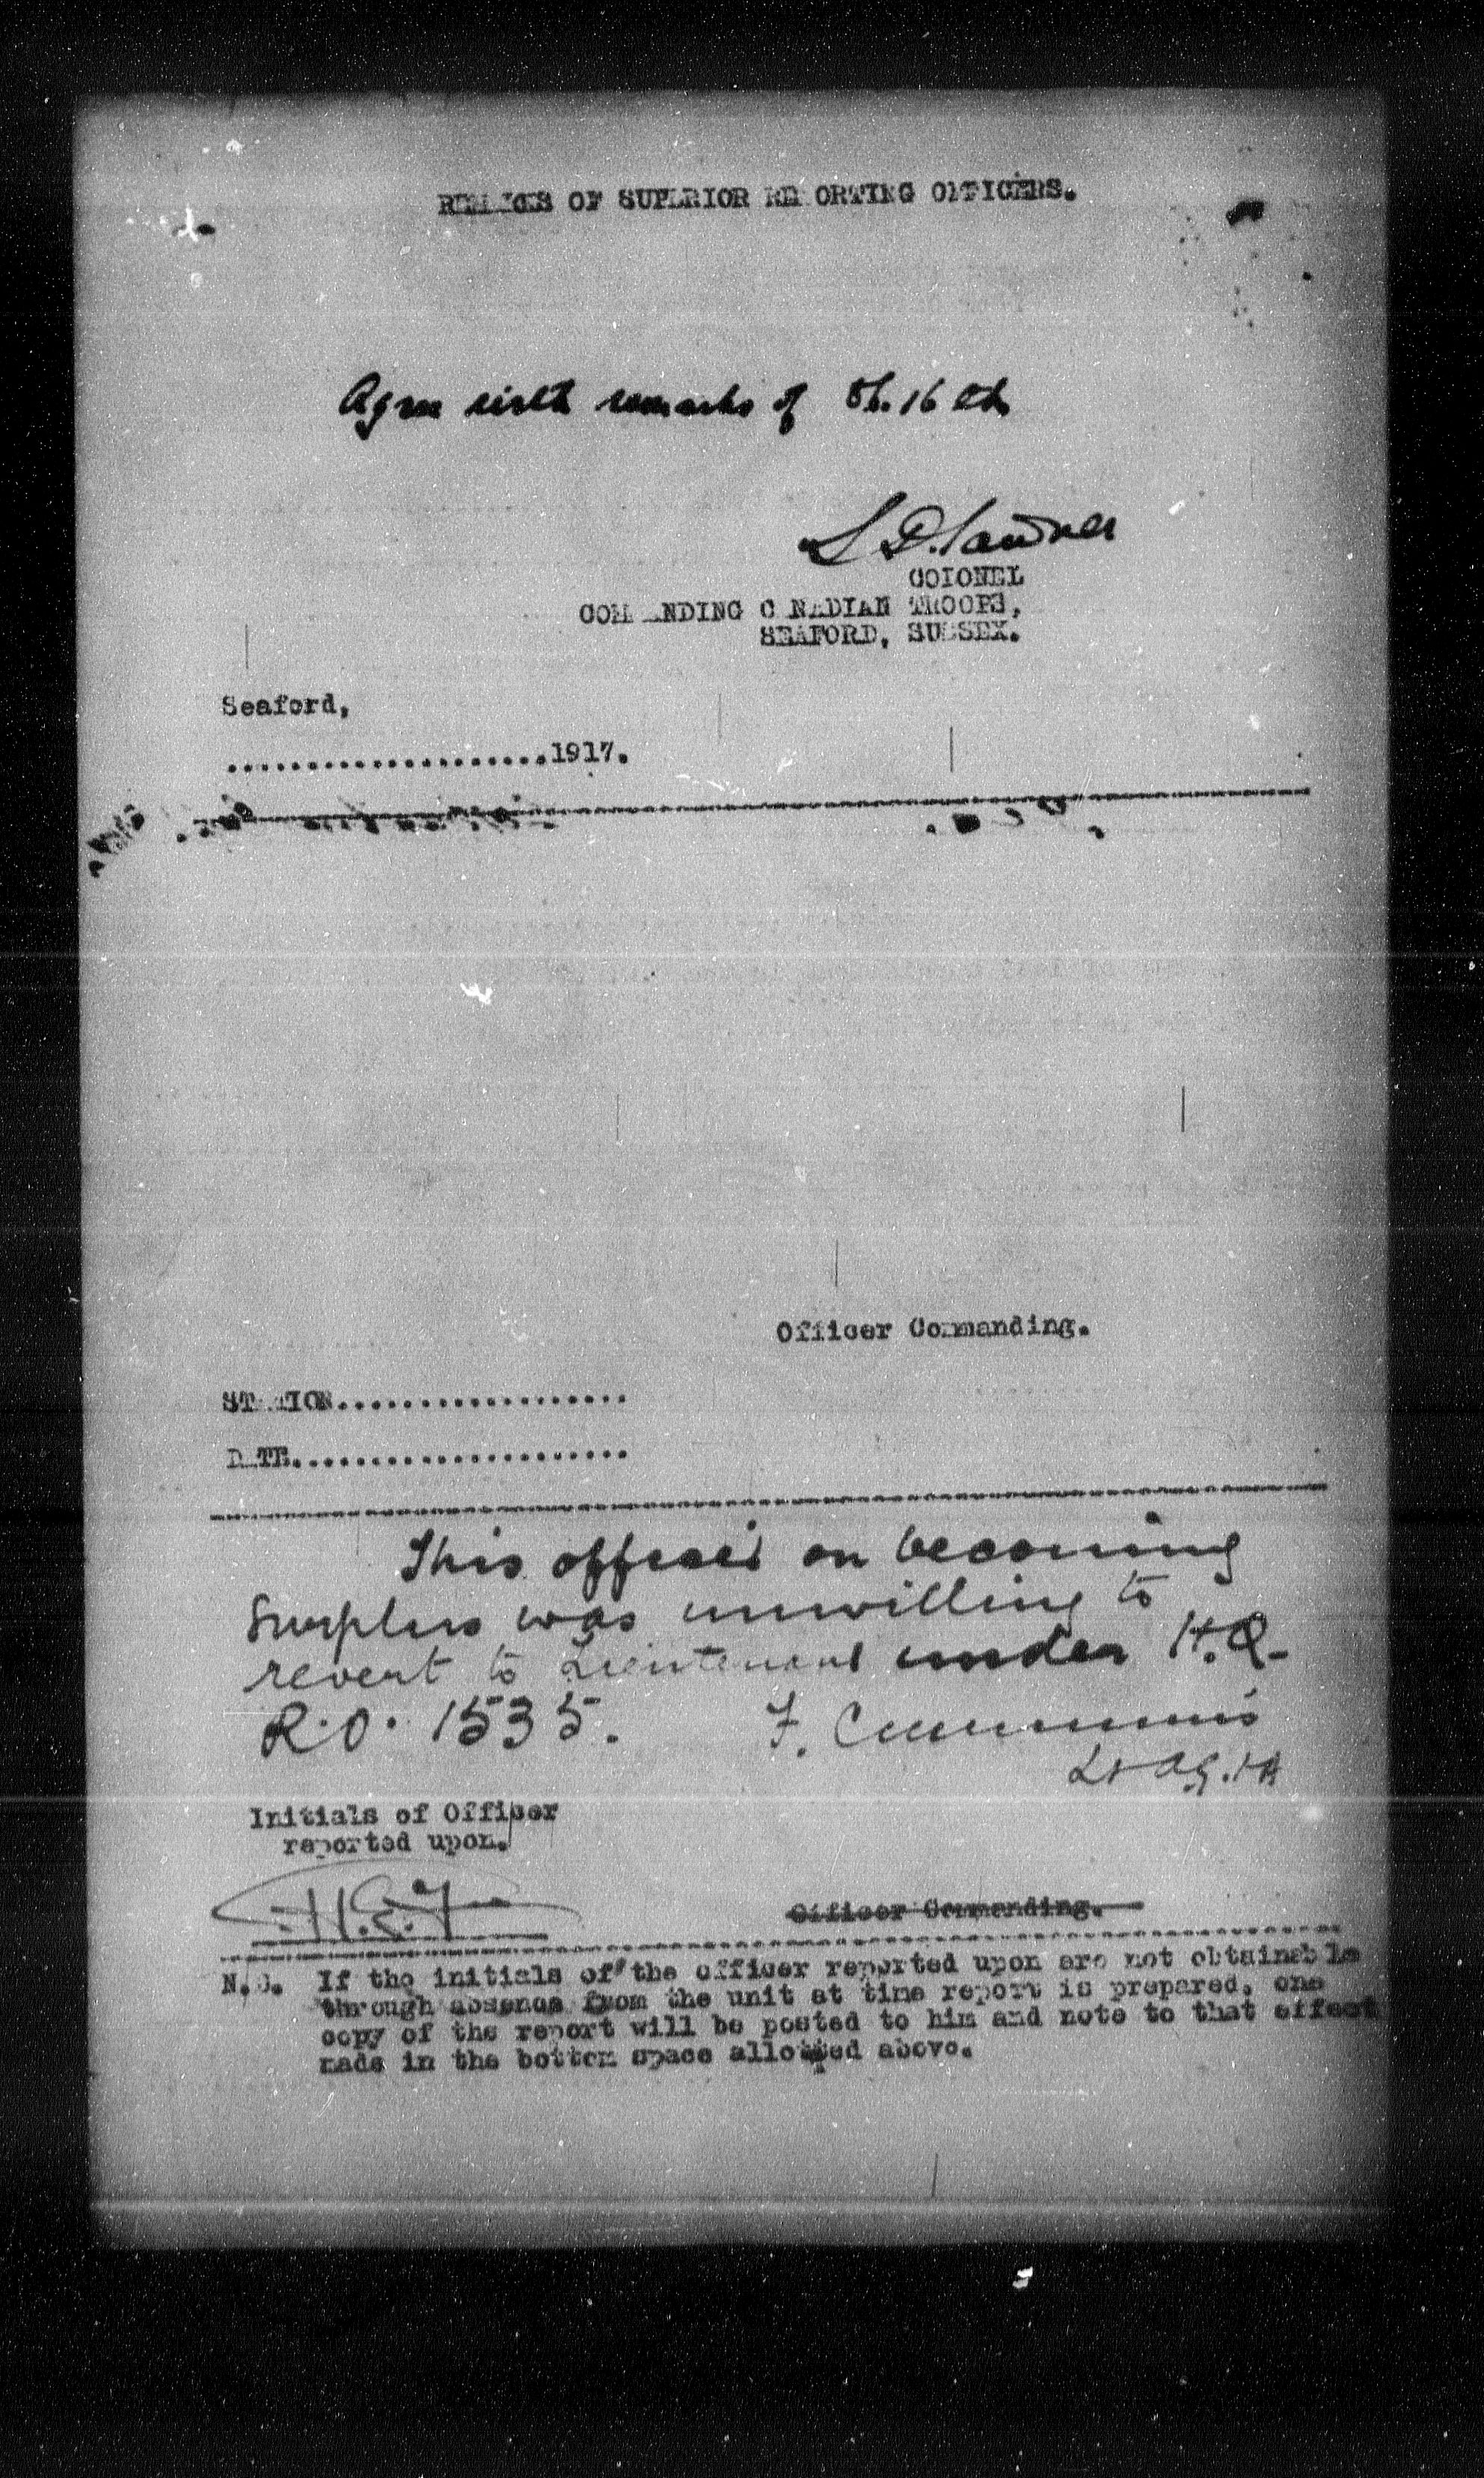 REMARKS OF SUPERIOR REPORTING OFFICERS.
Agree with remarks of 16th
COLONEL
COMMANDING CANADIAN TROOPS,
SEAFORD, SUSSEX.
Seaford,
....................1917.
Officer Commanding.
STATION..................
DATE.....................
This officer on becoming
surplus was unwilling to
revert to Lieutenant under H.Q.
R.O. 1535. F. Cummins
Initials of Officer
reported upon.
Officer Commanding.
N.B. If the initials of the officer reported upon are not obtainable
through absence from the unit at time report is prepared, one
copy of the report will be posted to him and note to that effect
made in the bottom space allotted above.